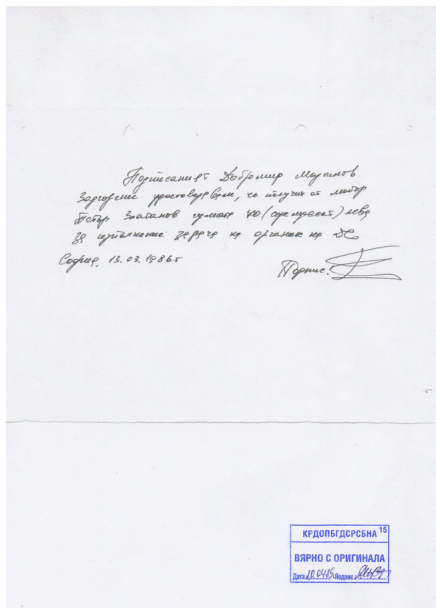 Подписаният Добромир Мартинов
Задгорски удостоверявам, че получих от майор
Петър Златанов сумата 40 (четиридесет) лева
за изпълнение задача на органите на ДС
София, 13.03.1986г Подпис:
КРДОПБГДСРСБНА 15
ВЯРНО С ОРИГИНАЛА
Дата Подпис